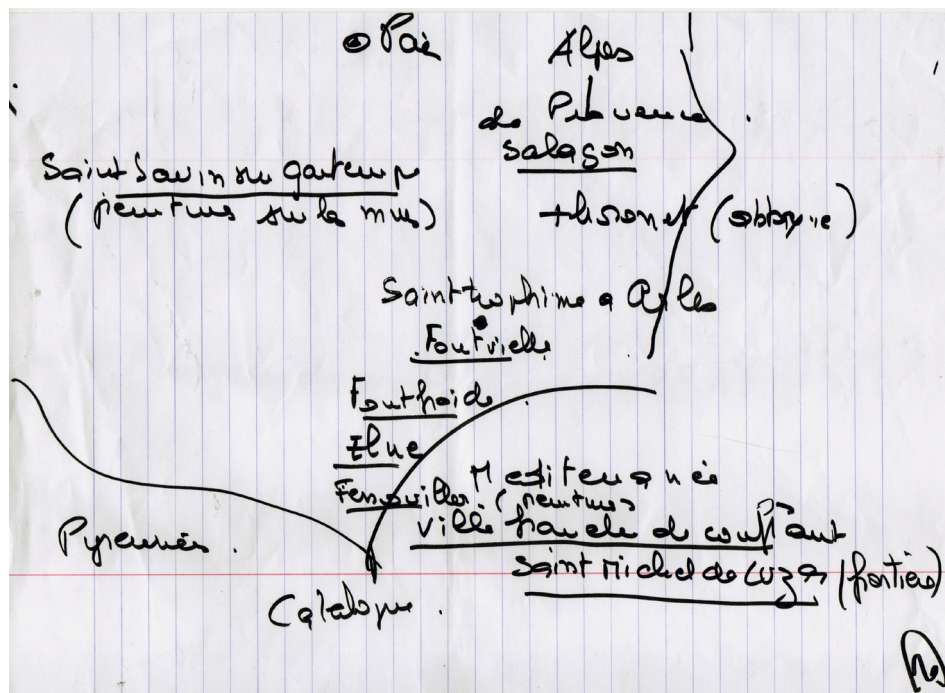 Alpes
de Provence
Salagon
Saint Savin sur gartempe
(peintures sur les murs)
thoronet (abbaye)
Saint trophime a Arles
Fontvielle
Fontfroide
Elne
Mediterranée
Fenouilles (peintures)
Ville franche de conflant
Pyrennés.
Saint Michel de Cuza (frontière)
Catalogne.